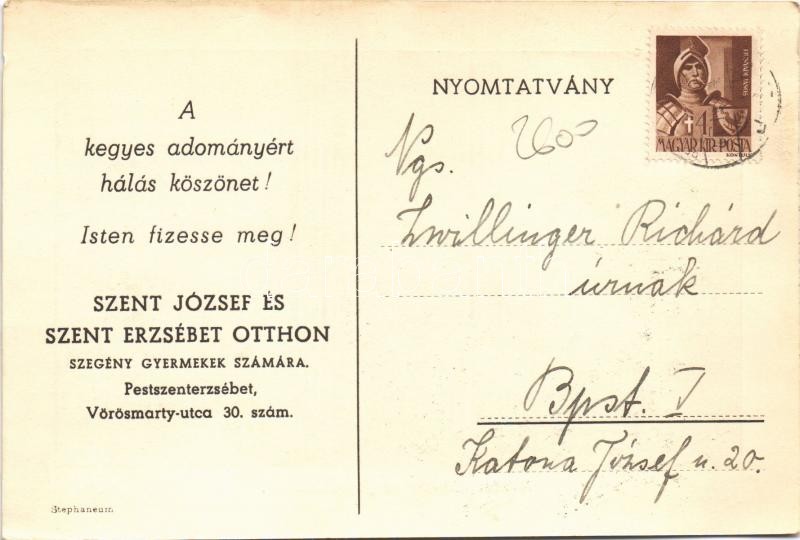 A
kegyes adományért
hálás köszönet!
Isten fizesse meg!
SZENT JÓZSEF ÉS
SZENT ERZSÉBET OTTHON
SZEGÉNY GYERMEKEK SZÁMÁRA.
Pestszenterzsébet,
Vörösmarty-utca 30. szám.
Stephaneum
NYOMTATVÁNY
2600
HUNYADI JÁNOS
4
MAGYAR KIR. POSTA
Ngs.
Zwillinger Richárd
úrnak
Bpst. V
Katona József u. 20.